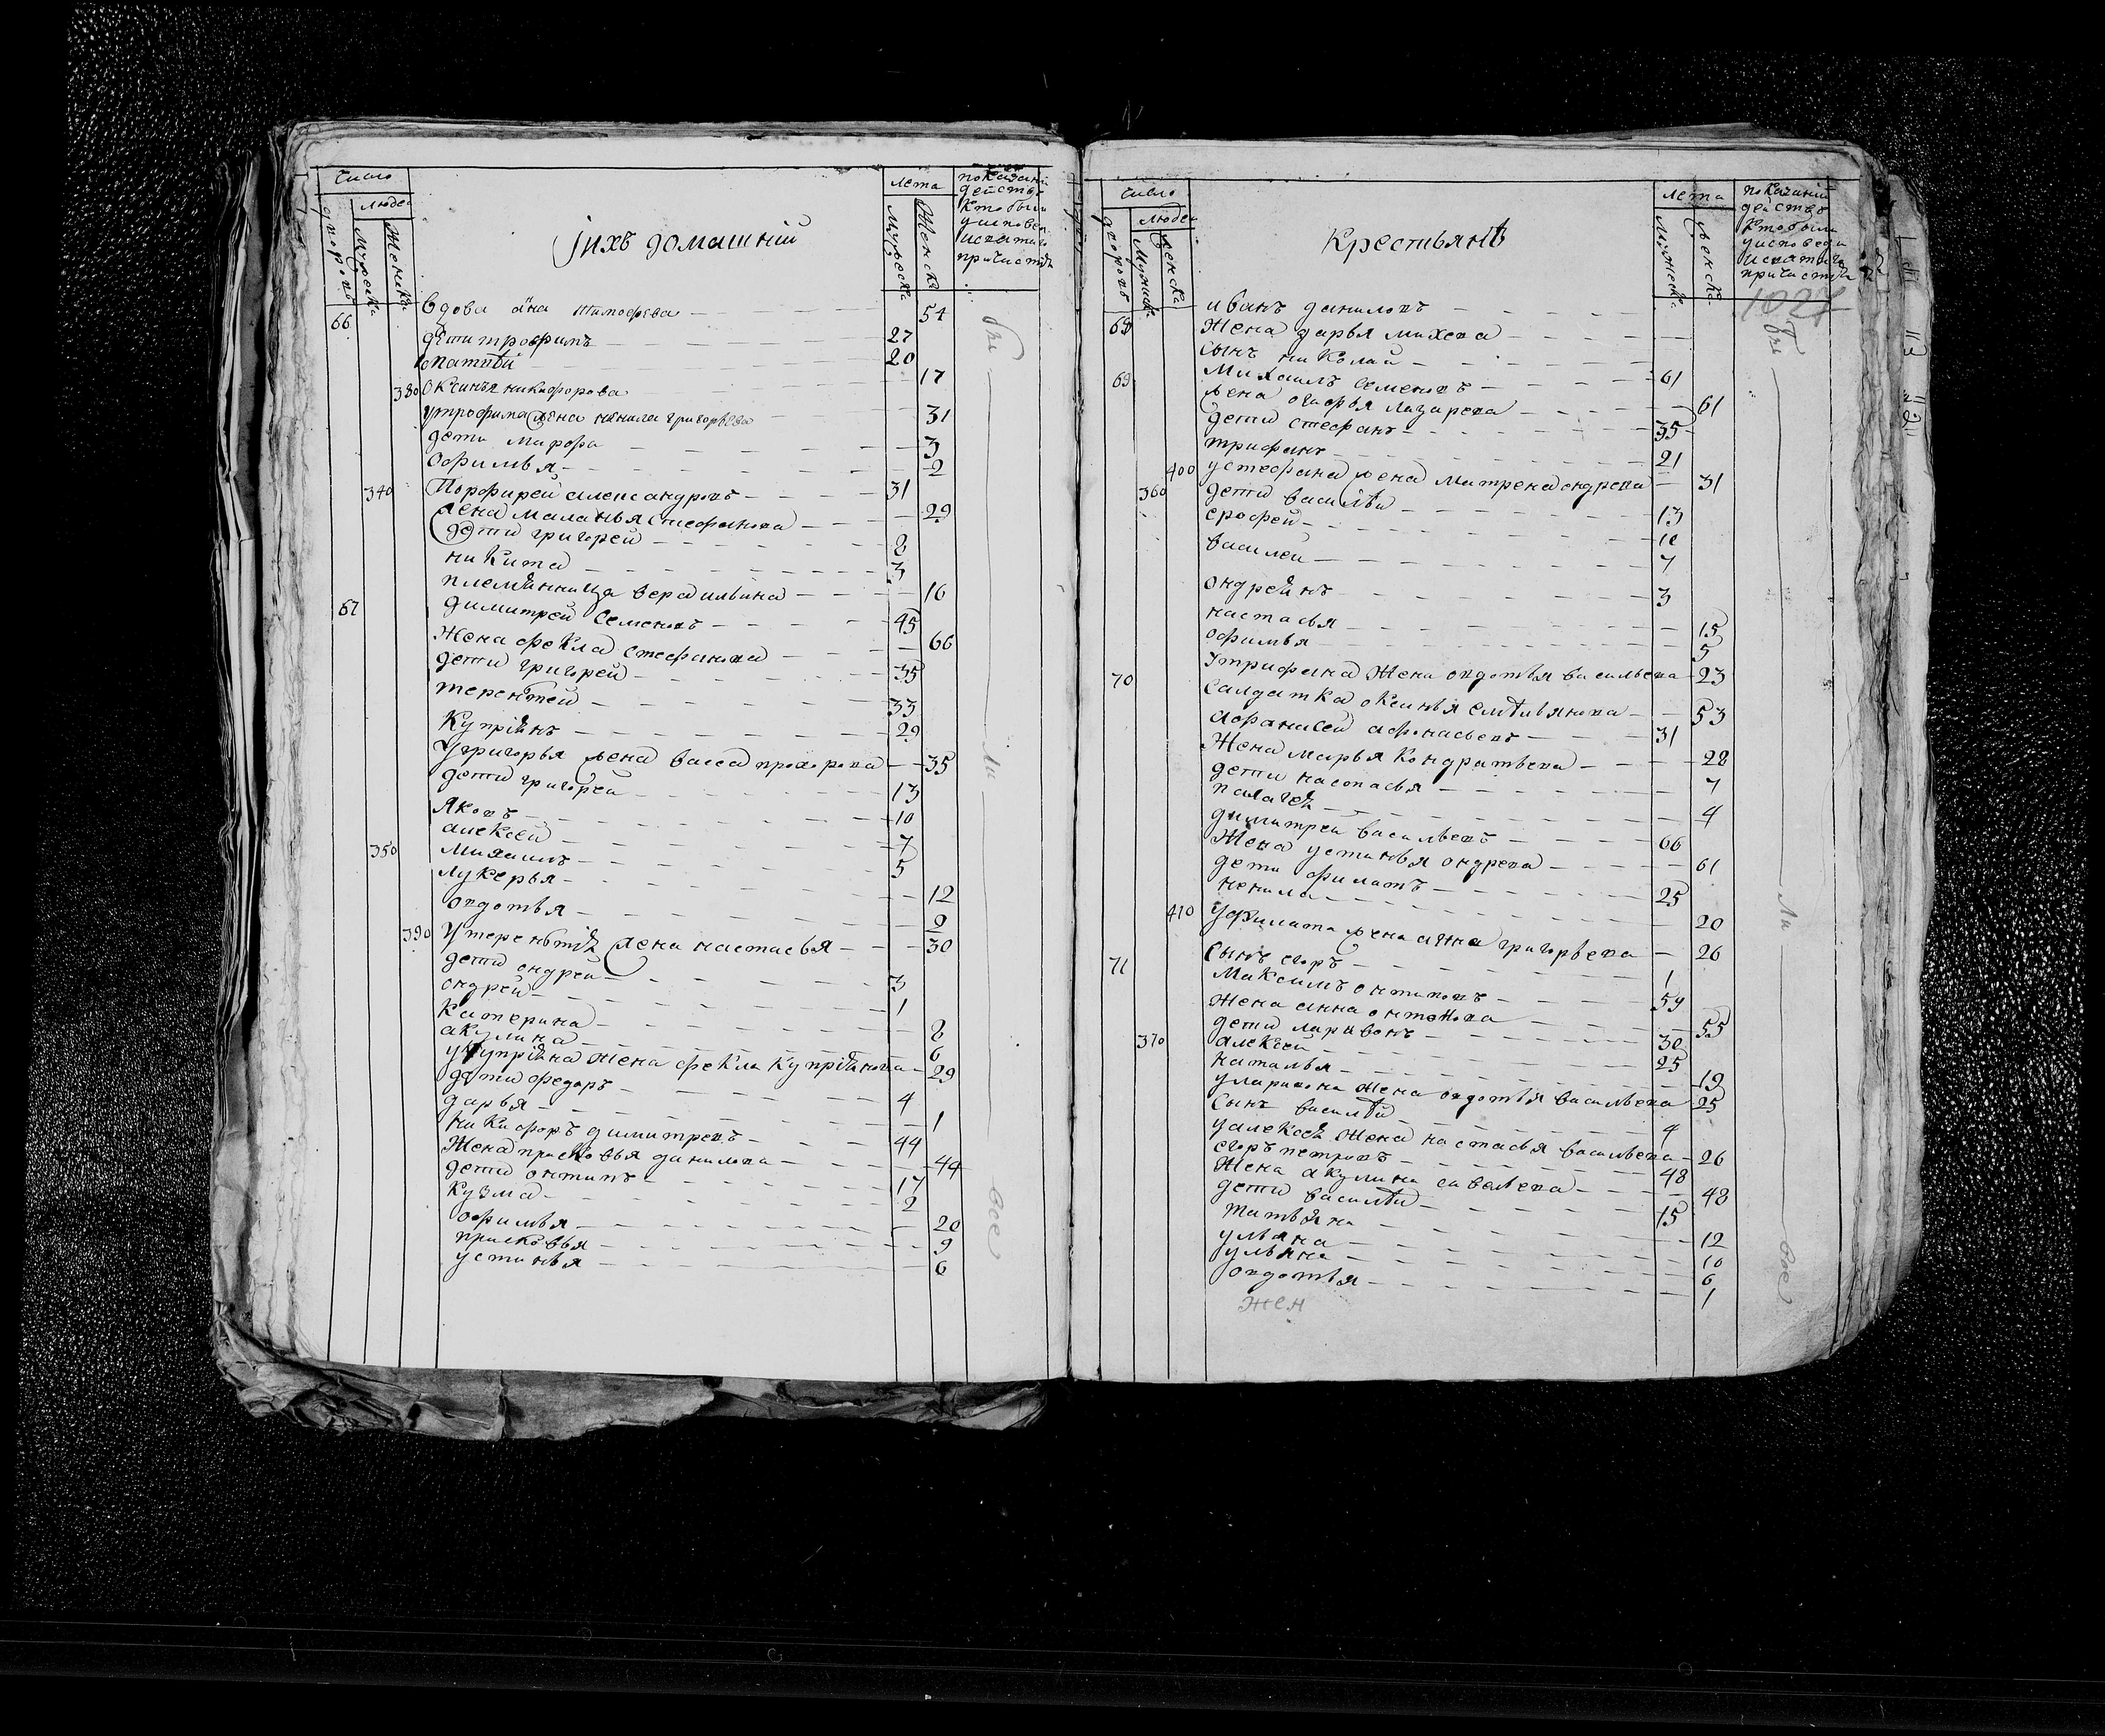 Число
Людей
дворовъ
Мужеска
Женска
Јихъ домашнїи
Лета
Мужеска
Женска
показани
действъ
Кто были
у исповеди
и святаго
причастия
66 Вдова анна тимофѣева 54
дети трофимъ 27
матвѣй 20
380 Оксинья никифорова 17
у трофима жена ненила григорьева 31
дети Марфа 3
Офимья 2
340 Порфирей александровъ 31
жена Маланья стефанова 29
дети григорей 8
никита 3
племянница вера ильина 16
67 димитрей Семеновъ 45
Жена фекла стефанова 66
дети григорей 35
терентей 33
Купріянъ 29
У григорья жена васса прохорова 35
дети григорей 13
Яковъ 10
алексей 7
350 Михаилъ 5
лукерья 12
овдотья 9
390 У терентия жена настасья 30
дети андрей 3
ондрей 1
Катерина 8
акулина 6
у Купріяна жена фекла Купріянова 29
дети федоръ 4
дарья 1
никифоръ димитревъ 44
Жена прасковья данилова 44
дети онтипъ 17
Кузма 2
офимья 20
прасковья 9
устинья 6
бы ли вое
Число
Людей
дворовъ
Мужеска
женска
Крестьянѣ
Лета
Мужеска
женска
показаний
действъ
Кто были
у исповеди
и святаго
причастия
1027
иванъ даниловъ
68 Жена дарья михеева
сынъ николай
69 Михаилъ Семеновъ 61
жена огафья лазарева 61
дети стефанъ 35
трифанъ 21
400 у стефана жена Матрена ондреева 31
360 дети василѣй 13
ерофей 10
василей 7
ондреянъ 3
настасья 15
офимья 5
У трифана Жена овдотья васильева 23
70 Салдатка оксинья емѣльянова 53
афанасей афонасьевъ 31
Жена марья Кондратьева 28
дети настасья 7
палагея 4
димитрей васильевъ 66
Жена устинья ондреева 61
дети филатъ 25
ненила 20
410 У филата жена анна григорьева 26
Сынъ егоръ 1
71 Максимъ онтиповъ 59
Жена анна онтонова 55
дети ларивонъ 30
370 алексей 25
наталья 19
у ларивона жена овдотья васильева 25
Сынъ василѣй 4
у алексея Жена настасья васильева 26
егоръ петровъ 48
Жена акулина савельева 48
дети василѣй 15
татьяна 12
ульяна 10
ульяна 6
овдотья 1
жен
бы ли вое